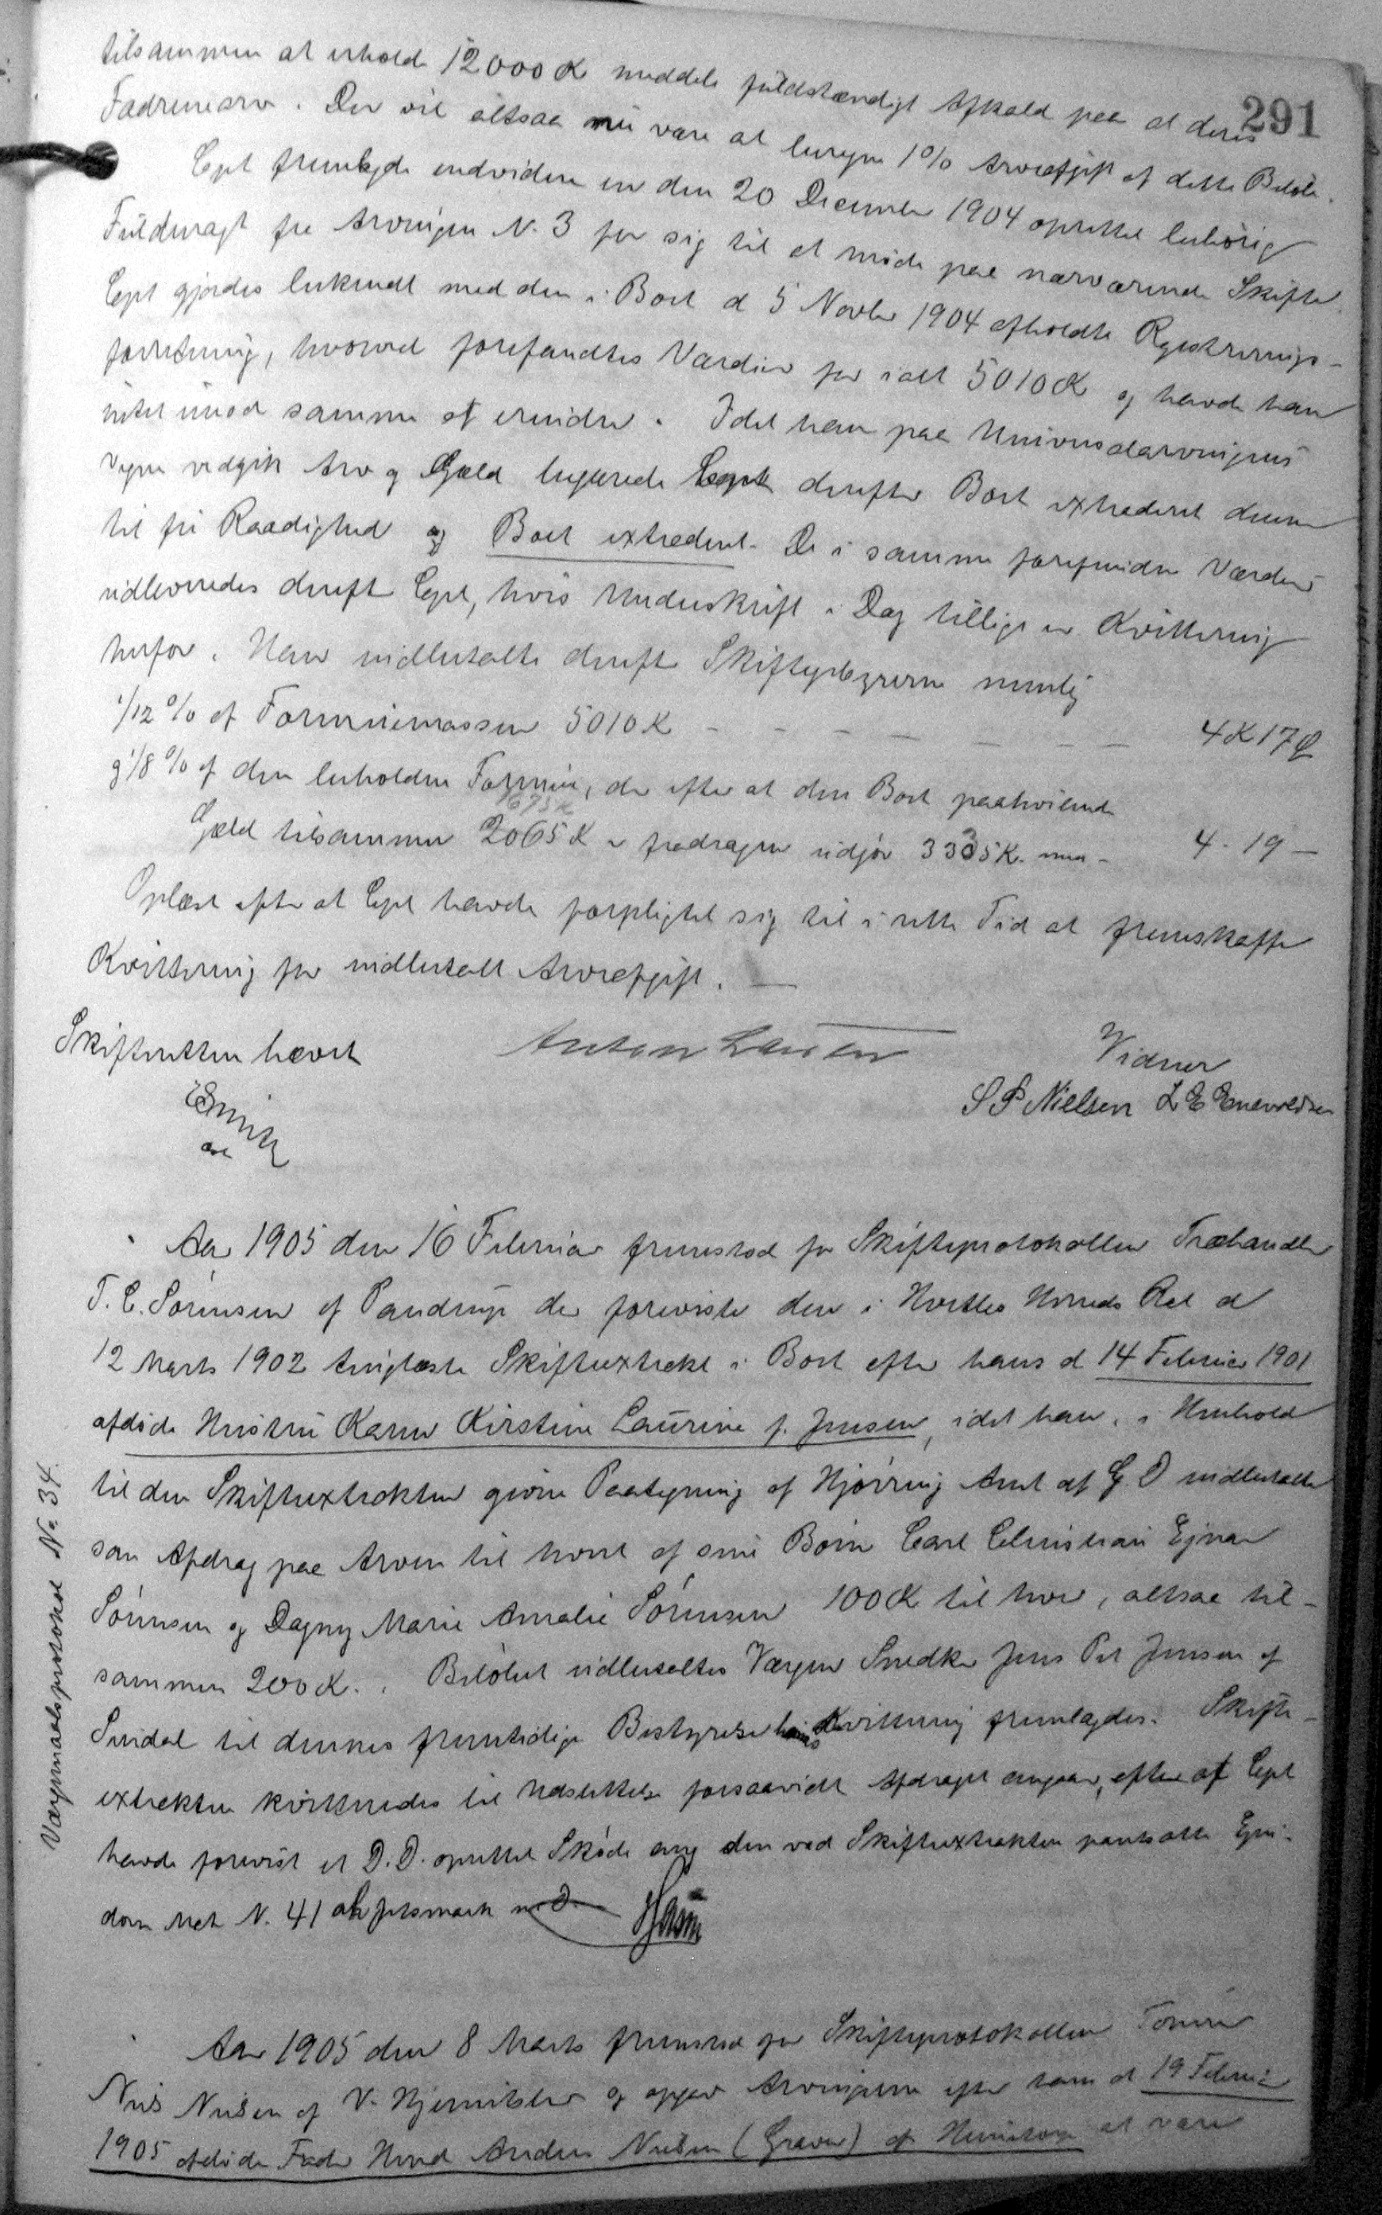 291
tilsammen at erholde 12000 K meddele fuldstændigt Afkald paa al deres
Fædrenearv. Der vil altsaa nu være at beregne 1% Arveafgift af dette Beløb.
Cpt fremlagde endvidere en den 20 December 1904 oprettet behørig
Fuldmagt fra Arvingen N. 3 for sig til at møde paa nærværende Skifte
Cpt gjordes bekendt med den i Boet d 5 Novbr 1904 afholdte Registrerings-
forretning, hvorved forefandtes Værdier for ialt 5010 K og havde han
intet imod samme at erindre. Idet han paa Universalarvingens
Vegne vedgik Arv og Gæld begærede Cpt derefter Boet extraderet denne
til fri Raadighed og Boet extraderet. De i samme forefundne Værdier
udleveredes dereft Cpt, hvis Underskrift i Dag tillige er Kvittering
herfor. Han indbetalte dereft Skiftegebyrerne nemlig
1/12 % af Formuemassen 5010 K - - - - - - - 4 K 17 Ø
g 1/8 % af den beholdne Formue, der efter at den Boet paahvilende
1675 K
Gæld tilsammen 2065 K er fradragen udgjør 3335 K. - 4 - 19 -
Oplæst efter at Cpt havde forpligtet sig til i rette Tid at fremskaffe
Kvittering for indbetalt Arveafgift.
Skifteretten hævet
Anton Larsen
Vidner
S P Nielsen L E Enevoldsen
Aar 1905 den 16 Februar fremstod for Skifteprotokollen Træhandler
T. C. Sørensen af Pandrup der foreviste den i Hvetbo Herreds Ret d
12 Marts 1902 tinglæste Skifteextrakt i Boet efter hans d 14 Februar 1901
afdøde Hustru Karen Kirstine Laurine f. Jensen, idet han, i Henhold
til den Skifteextrakten givne Paategning af Hjørring Amt af G. D indbetalte
som Afdrag paa Arven til hvert af sine Børn Carl Christian Ejnar
Sørensen og Dagny Marie Amalie Sørensen 100 K til hver, altsaa til-
sammen 200 K. Beløbet udbetaltes Værgen Snedker Jens Pet Jensen af
Sindal til dennes fremtidige Bestyrelse hans Kvittering fremlagdes. Skifte-
extrakten kvitteredes til Udslettelse forsaavidt Afdraget angaar, efter at Cpt
havde forevist et D. D. oprettet Skøde ang den ved Skifteextrakten pantsatte Ejen-
dom Mat N. 41 ah Jetsmark
Værgemaalsprotokol No 34.
Aar 1905 den 8 Marts fremstod for Skifteprotokollen Tømrer
Niels Nielsen af V. Hjermitslev og opgav Arvingerne efter hans d 19 Februar
1905 afdøde Fader Hmd Anders Nielsen (Graver) af at være